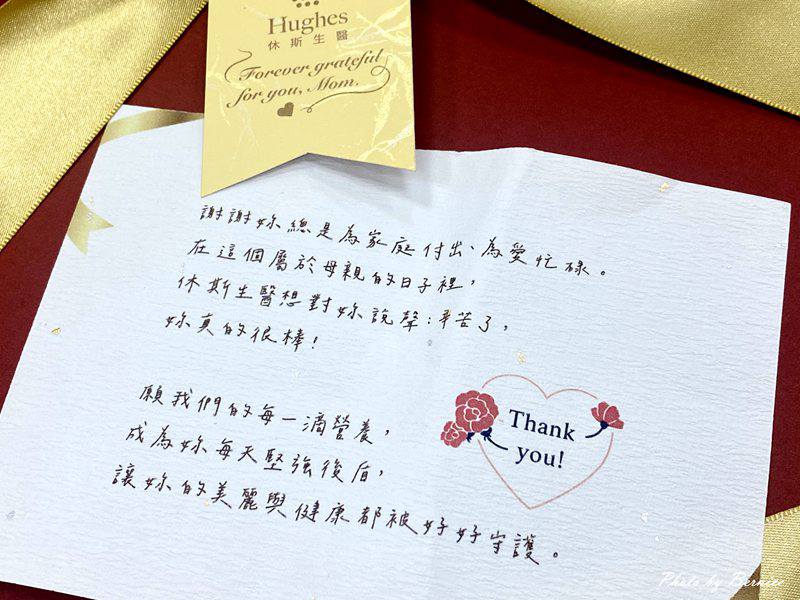 Hughes
休斯生醫
Forever grateful
for you, Mom.
謝謝妳總是為家庭付出、為愛忙碌。
在這個屬於母親的日子裡，
休斯生醫想對妳說聲：辛苦了，
妳真的很棒！
願我們的每一滴營養，
成為妳每天堅強後盾，
讓妳的美麗與健康都被好好守護。
Thank
you!
Photo by Bernice